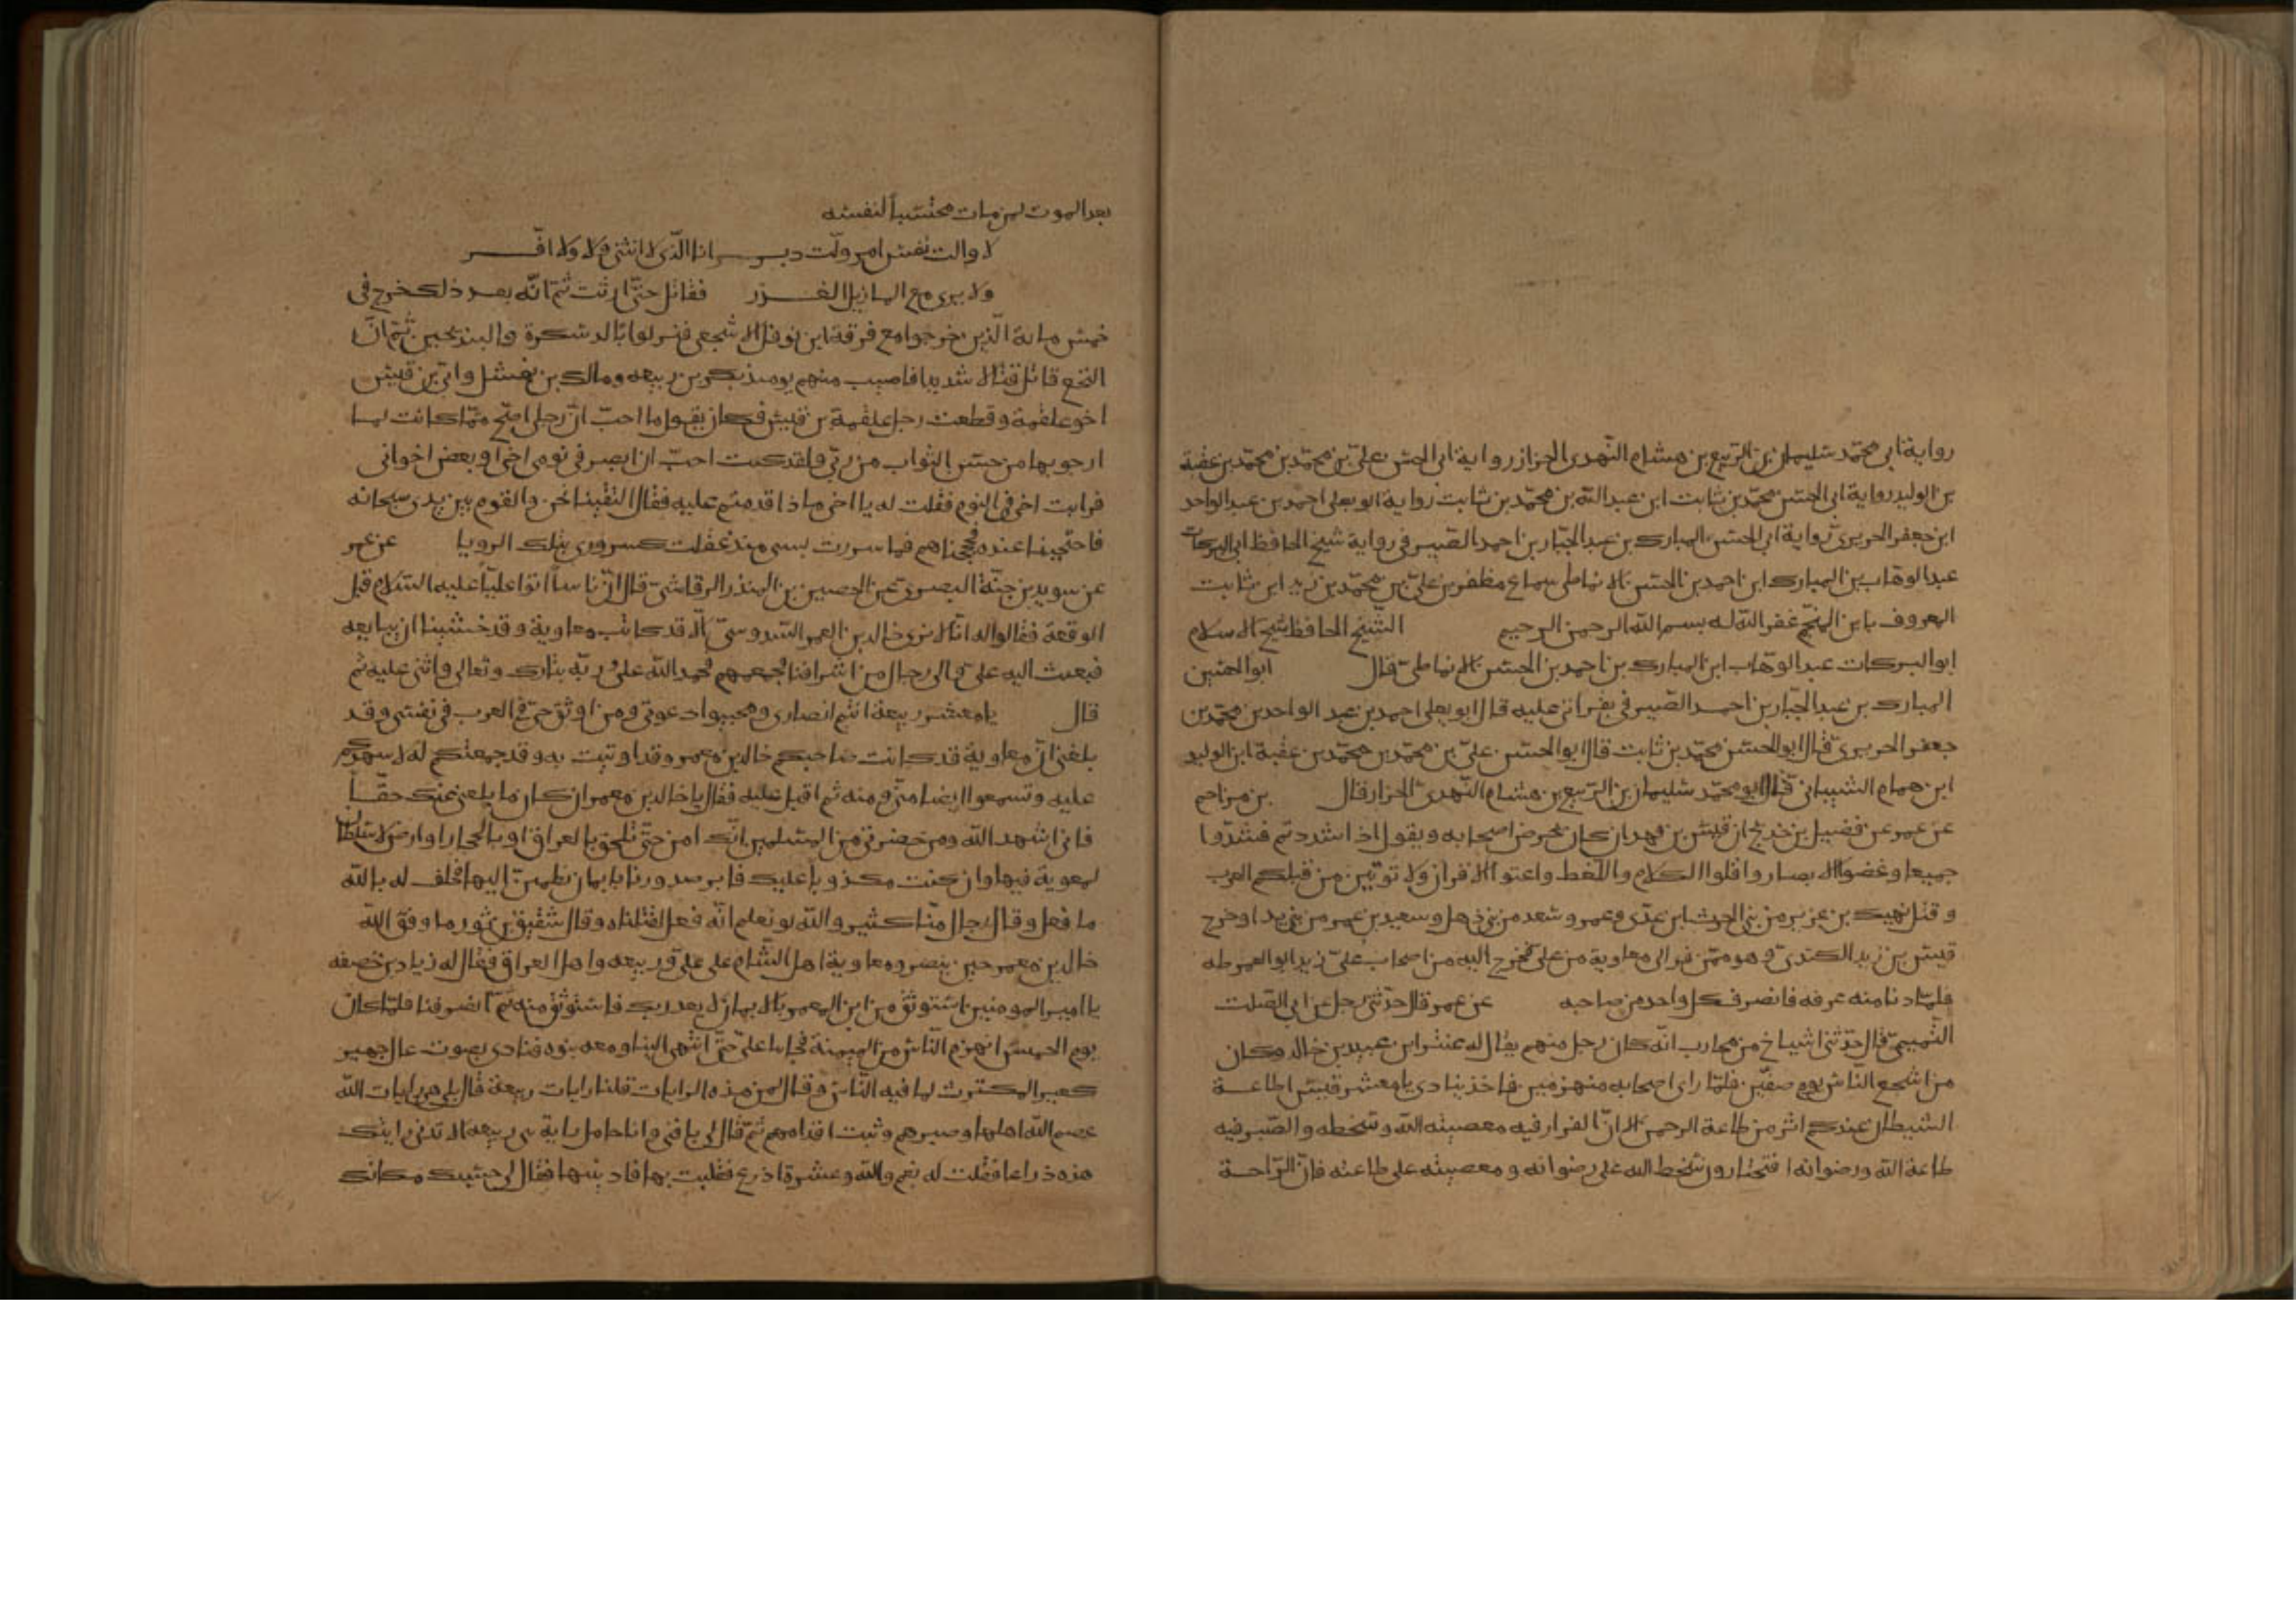 رواية ابى محمّد سليمان بن الرّبيع بن هشام النّهدى الخزاز رواية ابى الحسن على بن محمّد بن محمّد بن عقبة
بن الوليد رواية ابى الحسن محمّد بن ثابت ابن عبد الله بن محمّد بن ثابت رواية ابو يعلى احمد بن عبد الواحد
ابن جعفر الحريرىّ رواية ابى الحسن المبارك بن عبد الجبّار بن احمد الصيرفى رواية شيخ الحافظ ابى البركات
عبد الوهّاب بن المبارك ابن احمد بن الحسن الانماطى سماع مظفر بن علىّ بن محمّد بن زيد ابن ثابت
المعروف بابن المنجّم غفر الله له بسم الله الرحمن الرحيم الشّيخ الحافظ شيخ الاسلام
ابو البركات عبد الوهّاب ابن المبارك بن احمد بن الحسن الانماطىّ قال ابو الحسين
المبارك بن عبد الجبّار بن احمد الصّيرفى بقرائتى عليه قال ابو يعلى احمد بن عبد الواحد بن محمّد بن
جعفر الحريرىّ قال ابو الحسن محمّد بن ثابت قال ابو الحسن علىّ بن محمّد بن محمّد بن عقبة ابن الوليد
ابن همام الشيبانى قال ابو محمّد سليمان بن الرّبيع بن هشام النّهدىّ الخزاز قال بن مزاحم
عن عمر عن فضيل بن خديج ان قيس بن فهدان كان يحرض اصحابه ويقول اذا شددتم فشدّوا
جميعا وغضوا الابصار واقلوا الكلام واللّغط واعتوا الاقران ولا توتين من قبلكم العرب
وقتل نهيك بن عزير من بنى الحرث ابن عدّى وعمرو سعد من بنى ذهل وسعيد بن عمر من بنى يدا وخرج
قيس بن زيد الكندىّ وهو ممّن فر الى معاوية من على فخرج اليه من اصحاب علىّ زيد ابو العمرطه
فلمّا دنا منه عرفه فانصرف كل واحد من صاحبه عن عمر قال حدّثنى رجل عن ابى الصلت
التّميمىّ قال حدّثنى اشياخ من محارب انّه كان رجل منهم يقال له عنتر ابن عبيد بن خالد وكان
من اشجع النّاس يوم صفّين فلمّا راى اصحابه منهزمين فاخذ ينادى يا معشر قيس اطاعة
الشيطان عندكم اثر من طاعة الرحمن الا انّ الفرار فيه معصيته الله وسخطه والصّبر فيه
طاعة الله ورضوانه افتختارون سخط الله على رضوانه ومعصيته على طاعته فانّ الرّاحة
بعد الموت لمن مات محتسبا لنفسه
لا والت نفس امر ولّت دبر انا الّذى لا انثنى ولا ولا افّر
ولا يرى مع المازيل الغزر فقاتل حتّى ارثت ثمّ انّه بعد ذلك خرج فى
خمس ماىة الّذين خرجوا مع فرقة ابن نوفل الاشجعى فنزلوا بالدسكرة والبندنجين ثمّ انّ
النخع قاتل قتالا شديدا فاصيب منهم يومئذ بكر بن ربيعه ومالك بن نهشل وابىّ بن قيس
اخو علقمة وقطعت رجل علقمة بن قيس فكان يقول ما احبّ انّ رجلى اصّح ممّا كانت لما
ارجو بها من حسن الثواب من ربّى ولقد كنت احبّ ان ابصر فى نومى اخى او بعض اخوانى
فرايت اخى فى النوم فقلت له يا اخى ماذا قدمتم عليه فقال التقينا نحن والقوم بين يدى سبحانه
فاحتججنا عنده فحججناهم فما سررت بسى منذ عقلت كسرورى بتلك الرويا عن عمر
عن سويد بن حبّة البصرىّ عن الحصين بن المنذر الرقاشىّ قال انّ ناسا اتوا عليّا عليه السّلام قبل
الوقعة فقالوا له انّا لا نرى خالد بن العمر السّدوسىّ الا قد كاتب معاوية وقد خشينا ان يبايعه
فبعث اليه على والى رجال من اشرافنا فجمعهم فحمد الله على ربّه تبارك وتعالى واثنى عليه ثم
قال يا معشر ربيعة انتم انصارى ومجيبوا دعوتى ومن اوثق حىّ فى العرب فى نفسى وقد
بلغنى انّ معاوية قد كاتب صاحبكم خالد بن معمر وقد اوتيت به وقد جمعتكم له لاسهدكم
عليه وتسمعوا ايضا منّى ومنه ثم اقبل عليه فقال يا خالد بن معمر ان كان ما بلغنى عنك حقّا
فانى اشهد الله ومن حضرنى من المسلمين انّك امن حتّى تلحق بالعراق او بالحجاز او ارض لا سلطان
لمعوية فيها وان كنت مكذوبا عليك فابر صدورنا بايمان نطمين اليها فحلف له بالله
ما فعل وقال رجال منّا كثير والله لو نعلم انّه فعل لقتلناه وقال شقيق بن ثور ما وفق الله
خالد بن معمر حين ينصر ومعاوية اهل الشّام على علىّ وربيعه واهل العراق فقال له زياد بن خصفه
يا امير المومنين استوثق من ابن المعمر بالايمان لا يغدربك فاستوثق منه ثمّ انصرفنا فلمّا كان
يوم الخميس انهزم النّاس من الميمنة فجاءنا علىّ حتّى انتهى الينا ومعه بنوه فنادى بصوت عال جهير
كغير المكترث لما فيه النّاس وقال لمن هذه الرايات قلنا رايات ربيعة قال بل هى رايات الله
عصم الله اهلها وصبرهم وثبت اقدامهم ثمّ قال لى يا فتى وانا حامل راية بنى ربيعه الا تدنى رايتك
هذه ذراعا فقلت له نعم والله وعشرة اذرع فقلبت بها فادنيتها فقال لى حسبك مكانك